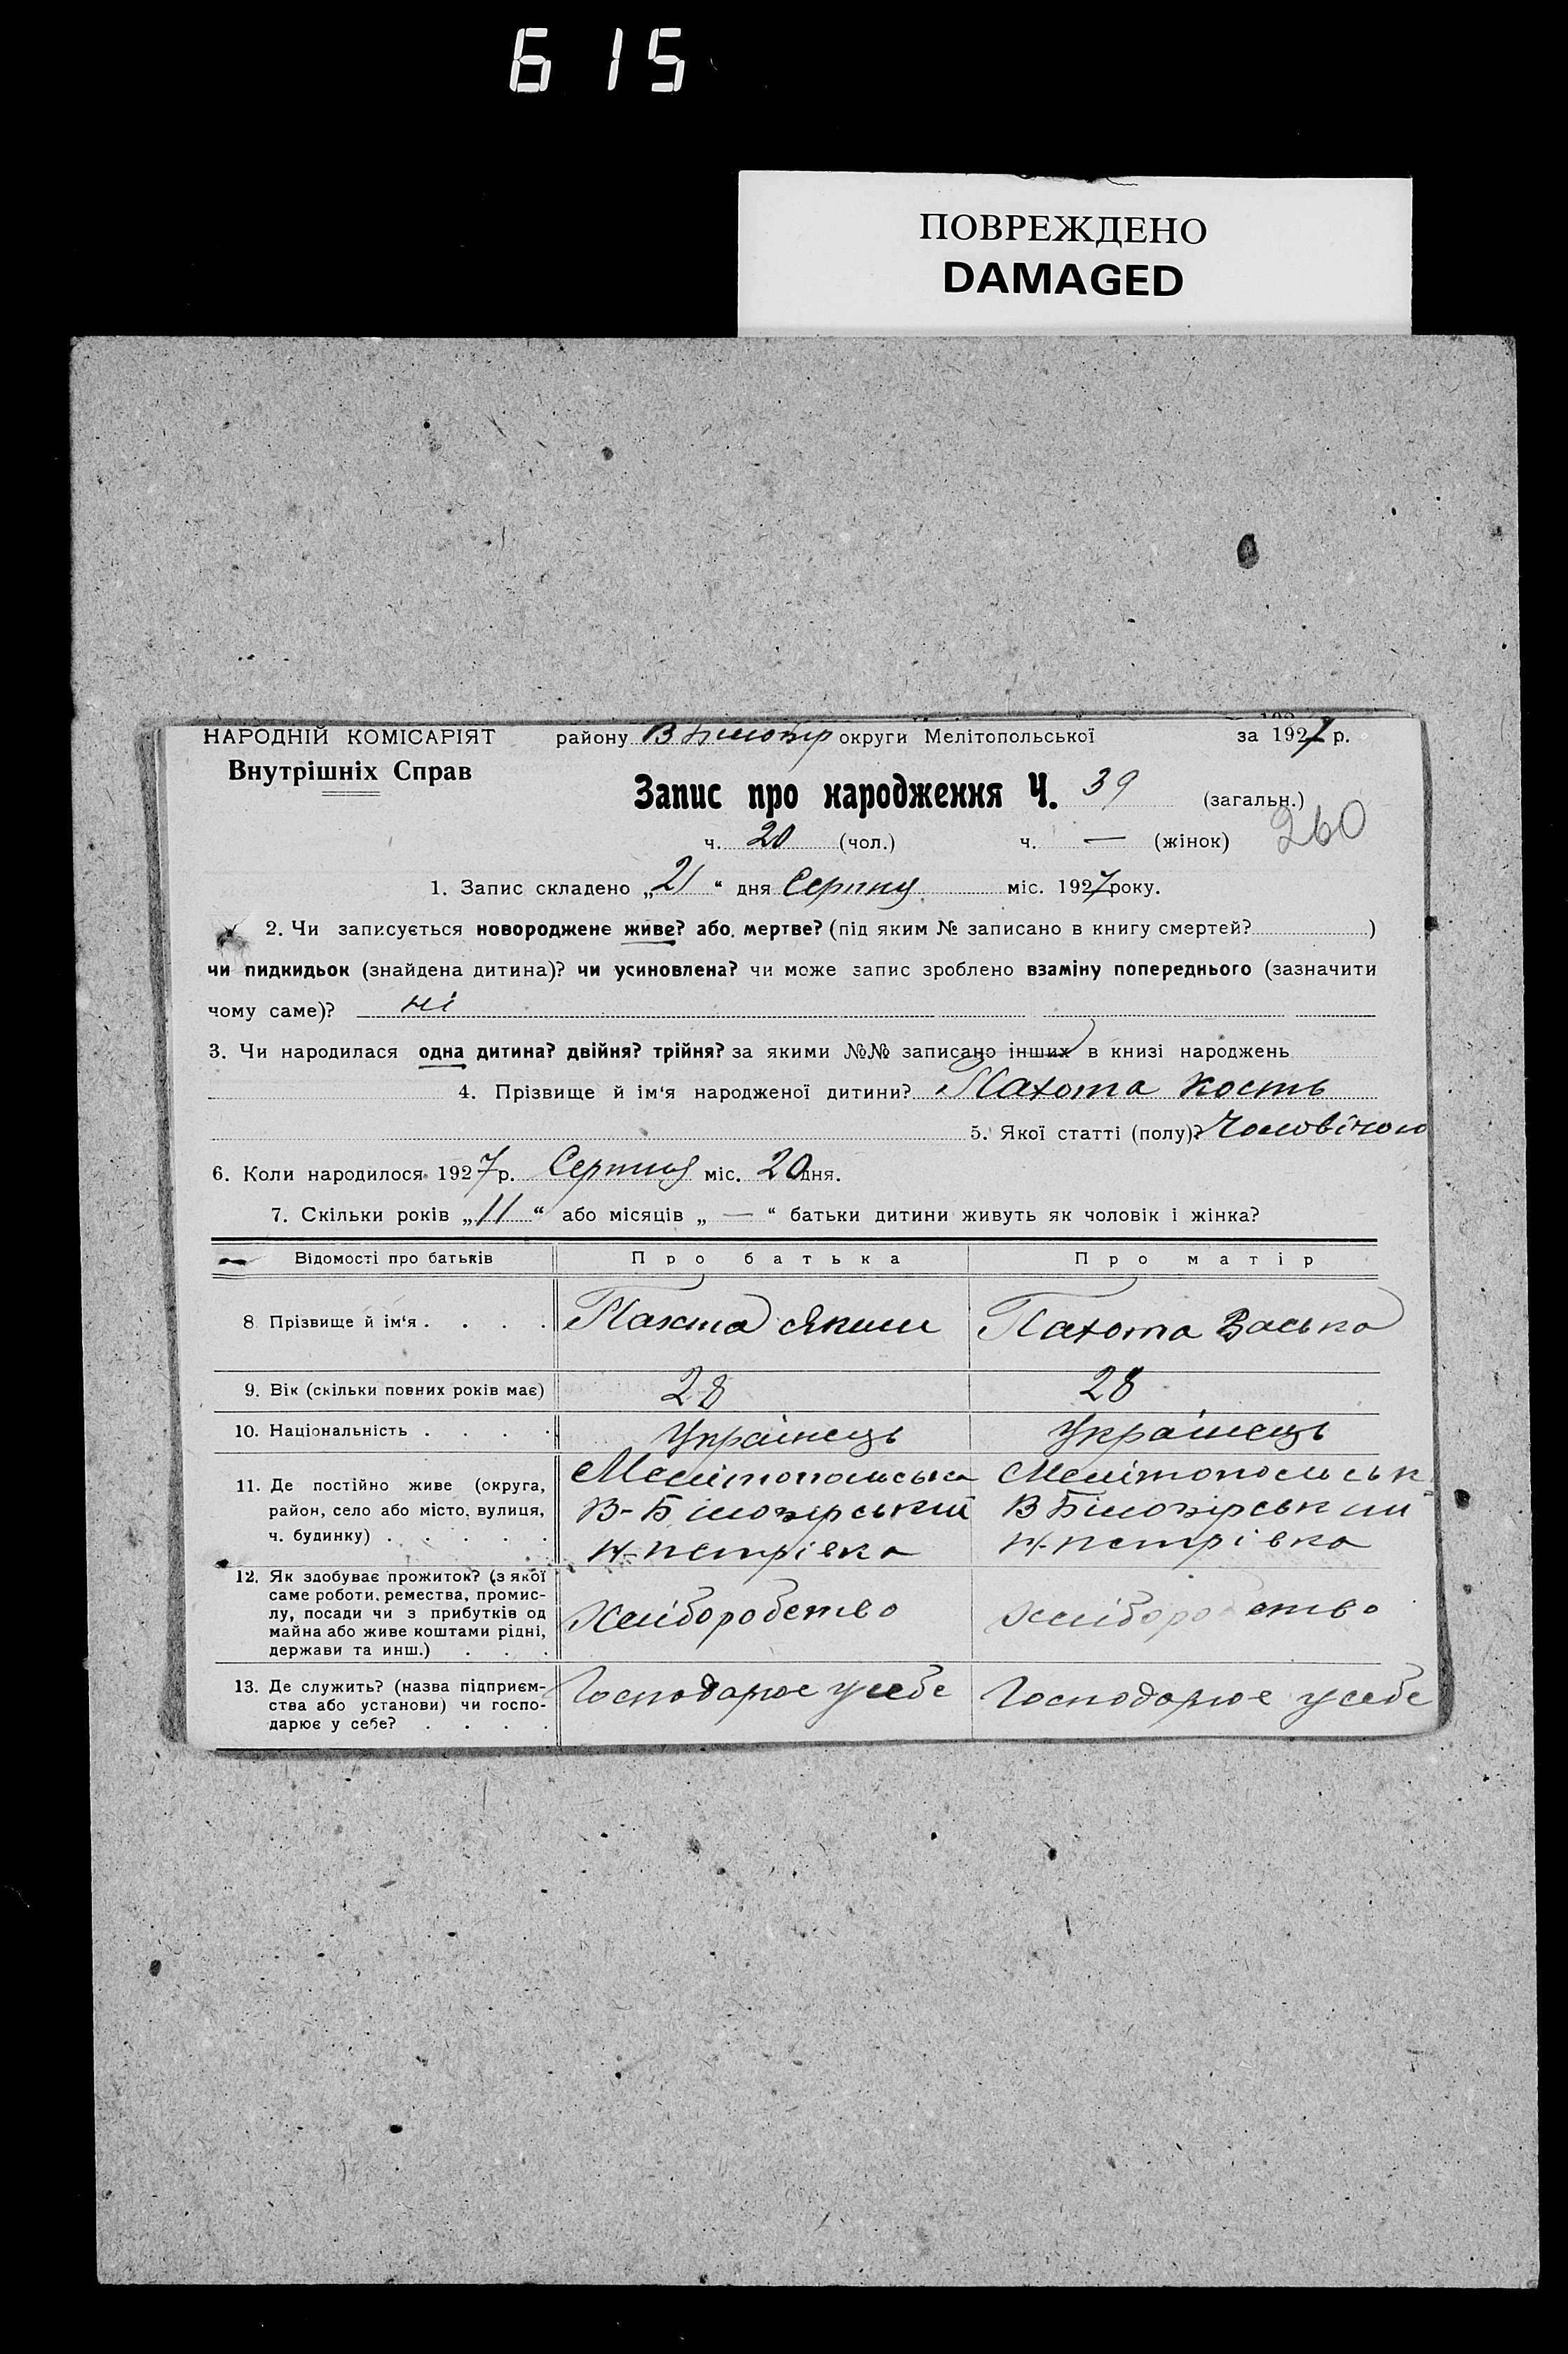 615
ПОВРЕЖДЕНО
DAMAGED
НАРОДНІЙ КОМІСАРІЯТ району В Білозір округи Мелітопольської за 1927 р.
Внутрішніх Справ
Запис про народження Ч. 39 (загальн.)
260
ч. 20 (чол.) ч. — (жінок)
1. Запис складено „21“ дня Серпня міс. 1927 року.
2. Чи записується новороджене живе? або мертве? (під яким № записано в книгу смертей? )
чи пидкидьок (знайдена дитина)? чи усиновлена? чи може запис зроблено взаміну попереднього (зазначити
чому саме)? ні
3. Чи народилася одна дитина? двійня? трійня? за якими №№ записано інших в книзі народжень
4. Прізвище й ім‘я народженої дитини? Пахота Кость
5. Якої статті (полу)? Чоловічою
6. Коли народилося 1927 р. Серпня міс. 20 дня.
7. Скільки років „11“ або місяців „—“ батьки дитини живуть як чоловік і жінка?
Відомості про батьків Про батька Про матір
8 Прізвище й ім‘я . . . . Пахота Яким Пахота Васька
9. Вік (скільки повних років має) 28 28
10. Національність . . . . Українець Українець
11. Де постійно живе (округа, Мелітопольська Мелітопольськ
район, село або місто, вулиця, В-Білозірський В Білозірський
ч. будинку) . . . . . Н-петрівка Н-петрівка
12. Як здобуває прожиток? (з якої
саме роботи, ремества, промис-
лу, посади чи з прибутків од Хліборобство хліборобство
майна або живе коштами рідні,
держави та инш.) . . .
13. Де служить? (назва підприєм- Господарює у себе Господарює у себе
ства або установи) чи госпо-
дарює у себе? . . . .